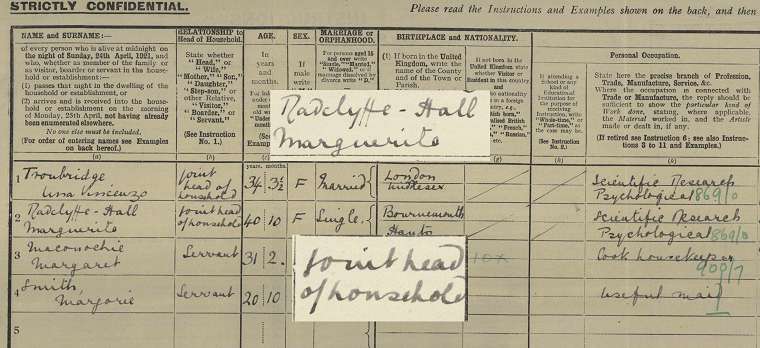 STRICTLY CONFIDENTIAL.
Please read the Instructions and Examples shown on the back, and then
NAME and SURNAME:—
of every person who is alive at midnight on
the night of Sunday, 24th April, 1921, and
who, whether as member of the family or
as visitor, boarder or servant in the house-
hold or establishment—
(1) passes that night in the dwelling of the
household or establishment, or
(2) arrives and is received into the house-
hold or establishment on the morning
of Monday, 25th April, not having already
been enumerated elsewhere.
No one else must be included.
(For order of entering names see Examples
on back hereof.)
(a)
RELATIONSHIP to
Head of Household.
State whether
"Head," or
"Wife,"
"Mother," "Son,"
"Daughter,"
"Step-son," or
other Relative,
"Visitor,"
"Boarder," or
"Servant."
(See Instruction
No. 1.)
(b)
AGE.
In
years
and
months.
years. months.
SEX.
If
male
write
MARRIAGE or
ORPHANHOOD.
For persons aged 15
and over write
BIRTHPLACE and NATIONALITY.
(1) If born in the United
Kingdom, write the
name of the County
and of the Town or
Parish.
If not born in the
United Kingdom state
whether Visitor or
Resident in this country
If attending a
School or any
kind of
Educational
Institution for
the purpose of
receiving
Instruction, write
"Whole-time," or
"Part-time," as
the case may be.
(See Instruction
No. 3.)
Personal Occupation.
State here the precise branch of Profession,
Trade, Manufacture, Service, &c.
Where the occupation is connected with
Trade or Manufacture, the reply should be
sufficient to show the particular kind of
Work done, stating, where applicable,
the Material worked in, and the Article
made or dealt in, if any.
(If retired see Instruction 6; see also Instructions
3 to 11 and Examples.)
(k)
Radclyffe-Hall
Marguerite
1 Troubridge
Una Vincenzo
Joint
head of
household
34 3½ F Married
London
Middlesex
Scientific Research
Psychological 869/0
2 Radclyffe-Hall
Marguerite
Joint head
of household
40 10 F Single
Bournemouth
Hants
Scientific Research
Psychological 869/0
3 Maconochie
Margaret
Servant 31 2.
Cook housekeeper
909/7
Joint head
of household
4 Smith,
Marjorie
Servant 20 10
Useful maid
5